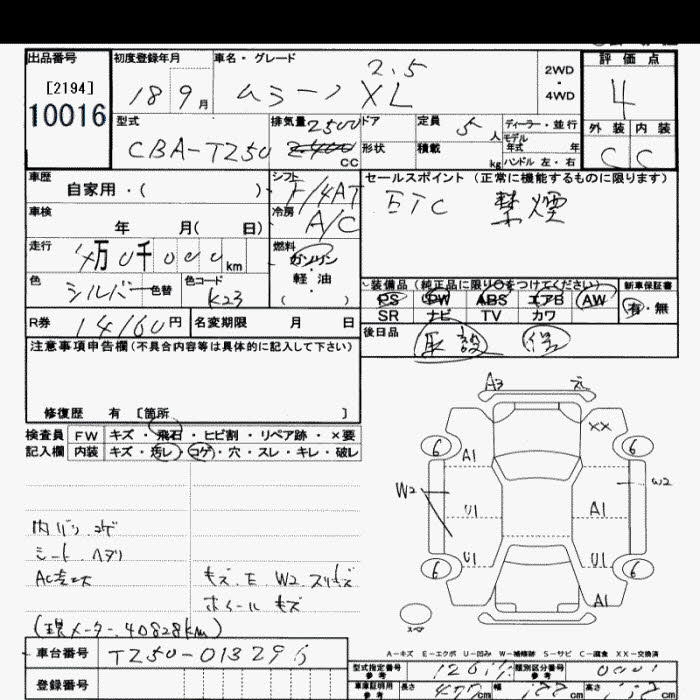 出品番号 初度登録年月 車名・グレード 評価点
[2194] 2.5 2WD
10016 18 9月 ムラーノ XL ・4WD 4
型式 排気量 2500 ドア 定員 5人 ディーラー・並行 外装 内装
CBA-TZ50 2400 CC 形状 積載 kg モデル年式 年 C C
ハンドル 左・右
車歴 自家用・( ) シフト F/4AT セールスポイント (正常に機能するものに限ります)
車検 年 月( 日) 冷房 A/C ETC 禁煙
走行 4万0千000km 燃料 ガソリン
軽・油
( )
色 シルバー 色替 色コード K23 装備品 (純正品に限り○をつけてください) 新車保証書
PS PW ABS エアB AW 有・無
SR ナビ TV カワ
R券 14160円 名変期限 月 日 後日品 取説 保
注意事項申告欄(不具合内容等は具体的に記入して下さい)
修復歴 有 [箇所 ]
検査員 FW キズ・飛石・ヒビ割・リペア跡・×要
記入欄 内装 キズ・汚レ・コゲ・穴・スレ・キレ・破レ
A3
XX
6 A1 6
W2 W2
U1 A1
6 U1 U1 6
A1
スペア
内バリ コゲ
シート ヘタリ
キズ.E.W2.
ホイール キズ
(現メーター 40828km)
A-キズ E-エクボ U-凹み W-補修跡 S-サビ C-腐食 XX-交換済
車台番号 TZ50-013296
登録番号
型式指定番号 参考 類別区分番号 参考 0001
車庫証明用 参考 長さ 477cm 幅 188cm 高さ cm